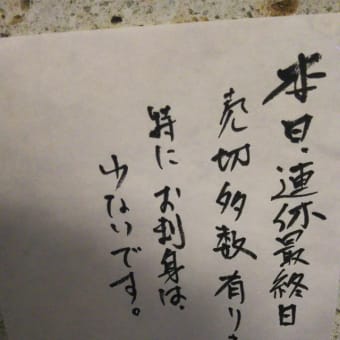 本日・連休最終日
売切多数有り
特にお刺身は、
少ないです。